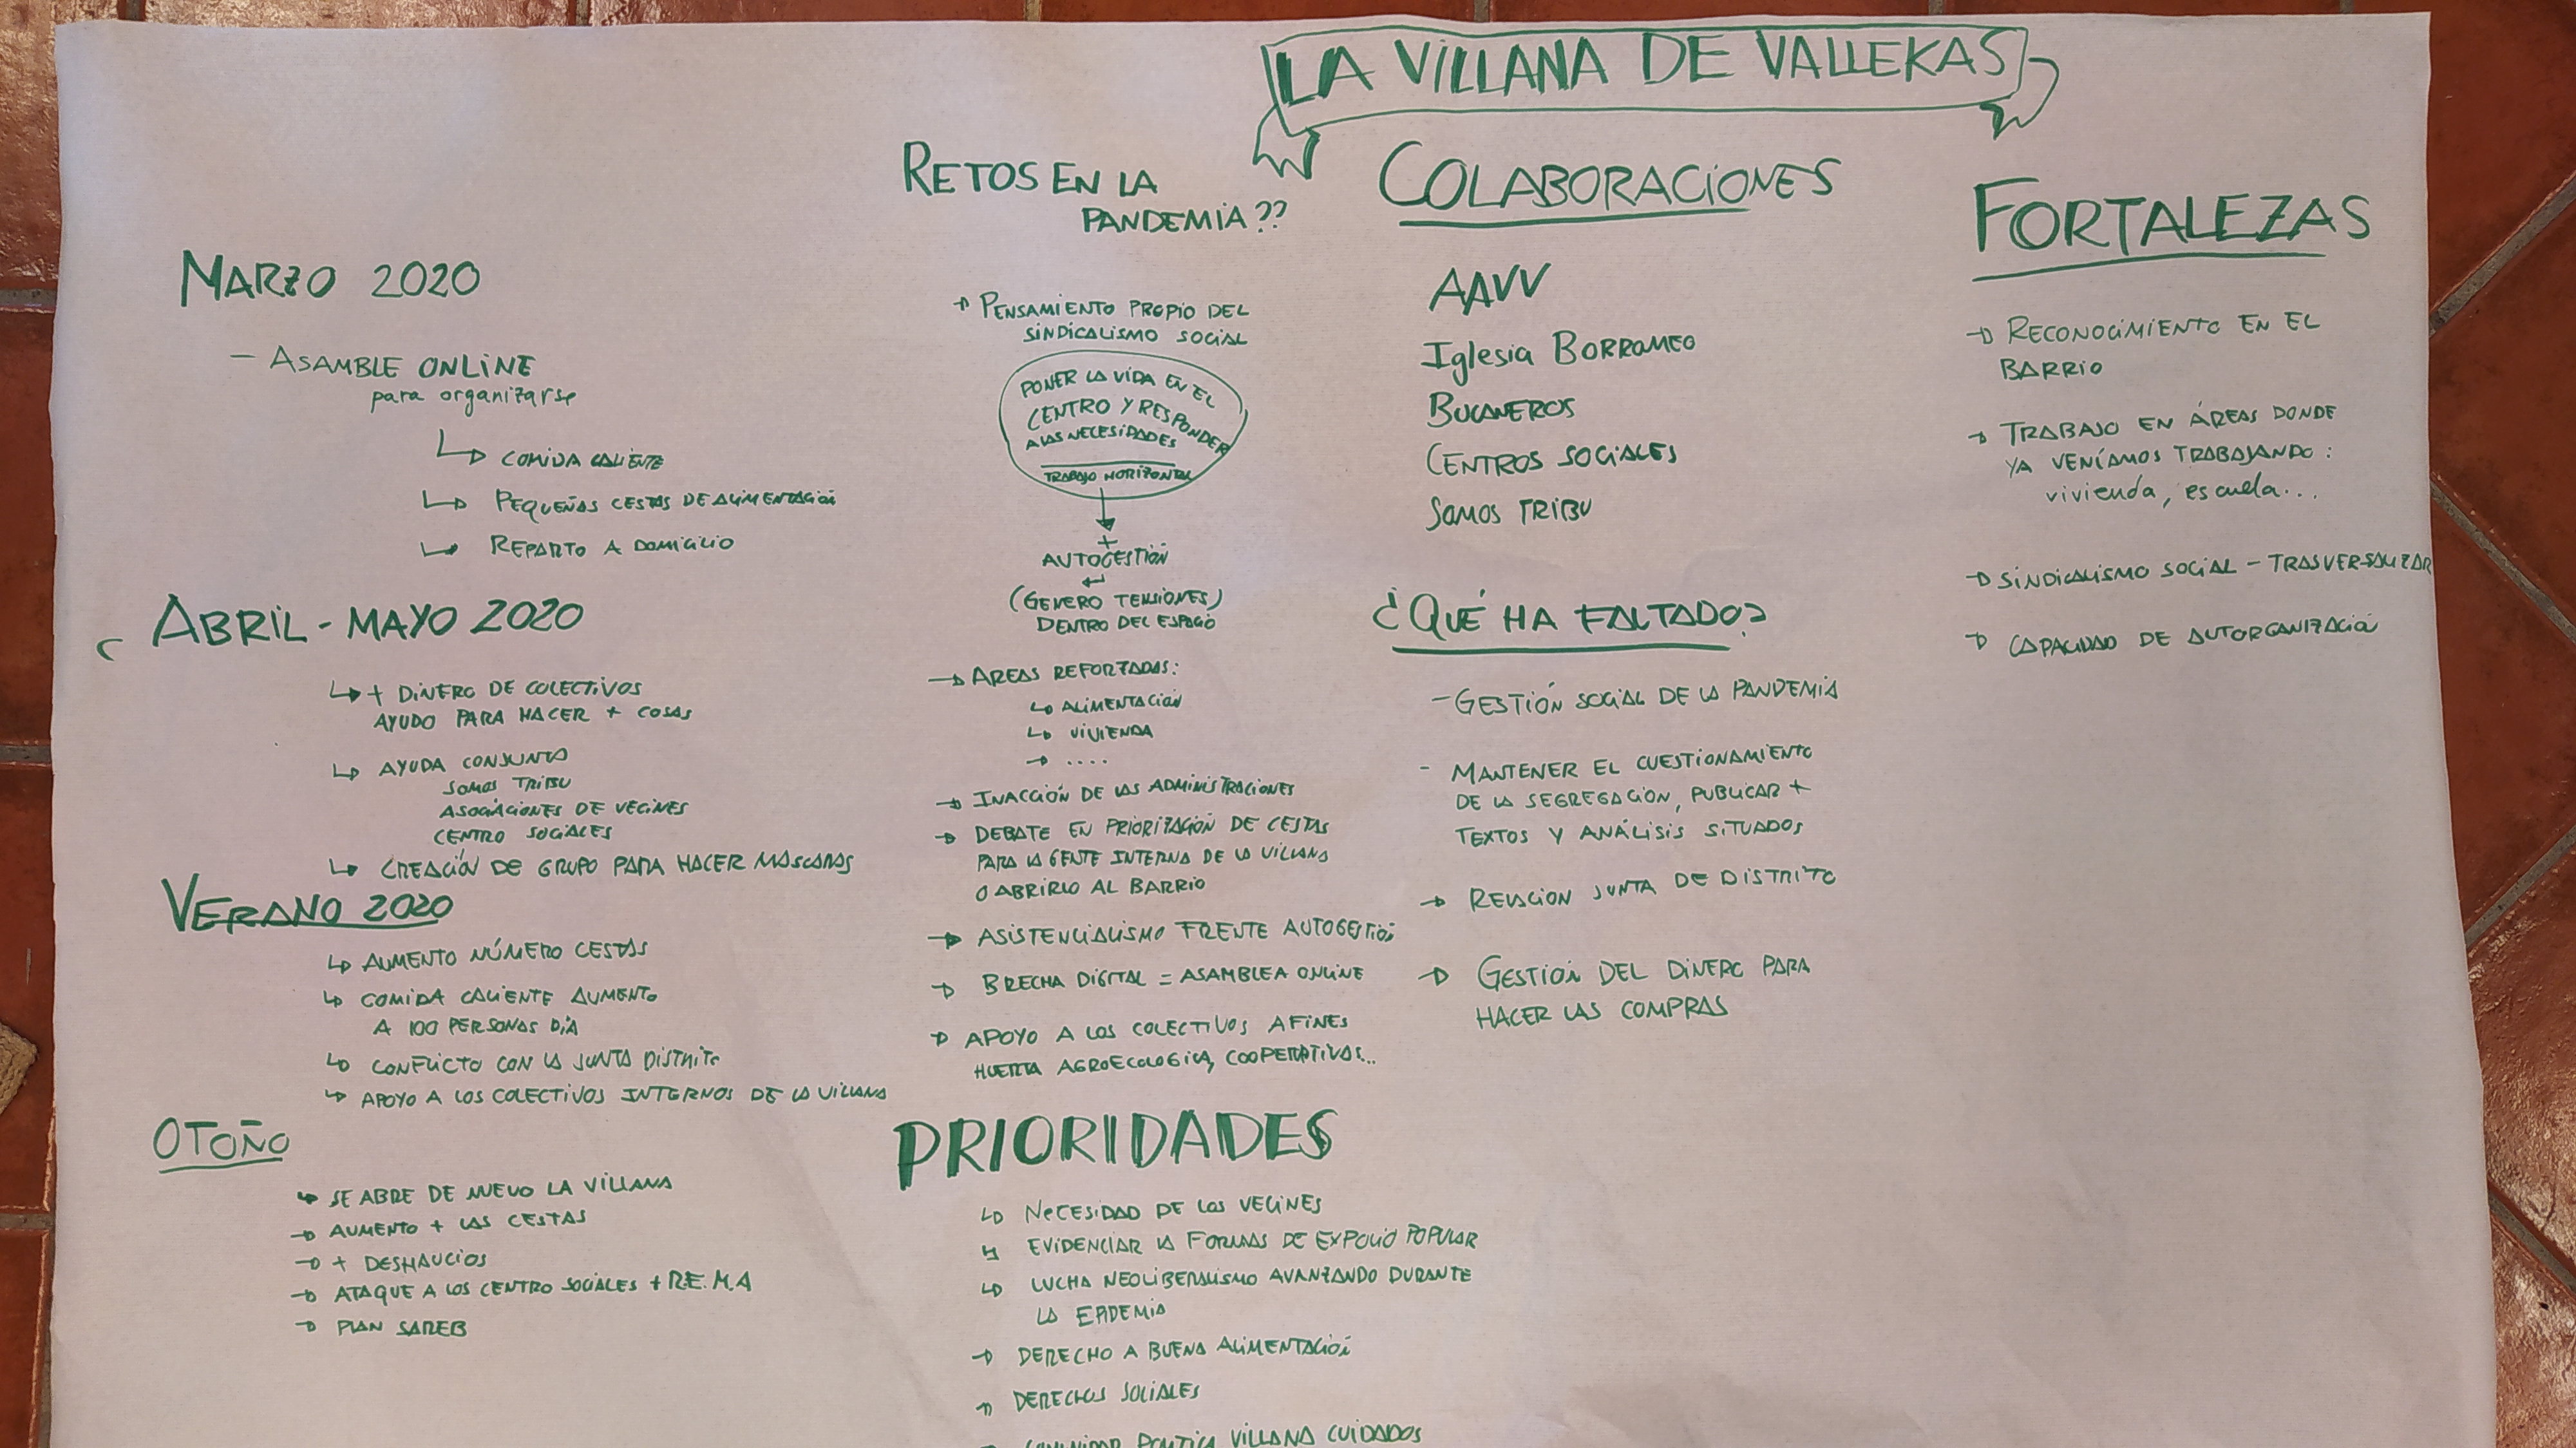 LA VILLANA DE VALLEKAS
MARZO 2020
- ASAMBLE ONLINE
para organizarse
COMIDA CALIENTE
PEQUEÑAS CESTAS DE ALIMENTACIÓN
REPARTO A DOMICILIO
ABRIL - MAYO 2020
+ DINERO DE COLECTIVOS
AYUDO PARA HACER + COSAS
AYUDA CONJUNTA
SOMOS TRIBU
ASOCIACIONES DE VECINES
CENTRO SOCIALES
CREACIÓN DE GRUPO PARA HACER MASCARAS
VERANO 2020
AUMENTO NÚMERO CESTAS
COMIDA CALIENTE AUMENTO
A 100 PERSONAS DÍA
CONFLICTO CON LA JUNTA DISTRITO
APOYO A LOS COLECTIVOS INTERNOS DE LA VILLANA
OTOÑO
SE ABRE DE NUEVO LA VILLANA
AUMENTO + LAS CESTAS
+ DESHAUCIOS
ATAQUE A LOS CENTRO SOCIALES + R.E.M.A
PLAN SAREB
RETOS EN LA
PANDEMIA??
PENSAMIENTO PROPIO DEL
SINDICALISMO SOCIAL
PONER LA VIDA EN EL
CENTRO Y RESPONDER
A LAS NECESIDADES
TRABAJO HORIZONTAL
+
AUTOGESTIÓN
(GENERO TENSIONES)
DENTRO DEL ESPACIO
AREAS REFORZADAS:
ALIMENTACIÓN
VIVIENDA
....
INACCIÓN DE LAS ADMINISTRACIONES
DEBATE EN PRIORIZACIÓN DE CESTAS
PARA LA GENTE INTERNA DE LA VILLANA
O ABRIRLO AL BARRIO
ASISTENCIALISMO FRENTE AUTOGESTIÓN
BRECHA DIGITAL = ASAMBLEA ONLINE
APOYO A LOS COLECTIVOS AFINES
HUERTA AGROECOLOGICA, COOPERATIVAS...
PRIORIDADES
NECESIDAD DE LOS VECINES
EVIDENCIAR LA FORMAS DE EXPOLIO POPULAR
LUCHA NEOLIBERALISMO AVANZANDO DURANTE
LA EPIDEMIA
DERECHO A BUENA ALIMENTACIÓN
DERECHOS SOCIALES
COMUNIDAD POLÍTICA VILLANA CUIDADOS
COLABORACIONES
AAVV
Iglesia BORROMEO
BUCANEROS
CENTROS SOCIALES
SOMOS TRIBU
¿QUÉ HA FALTADO?
- GESTIÓN SOCIAL DE LA PANDEMIA
- MANTENER EL CUESTIONAMIENTO
DE LA SEGREGACIÓN, PUBLICAR +
TEXTOS Y ANÁLISIS SITUADOS
RELACION JUNTA DE DISTRITO
GESTIÓN DEL DINERO PARA
HACER LAS COMPRAS
FORTALEZAS
RECONOCIMIENTO EN EL
BARRIO
TRABAJO EN ÁREAS DONDE
YA VENÍAMOS TRABAJANDO:
vivienda, escuela...
SINDICALISMO SOCIAL - TRASVERSALIZAR
CAPACIDAD DE AUTORGANIZACIÓN